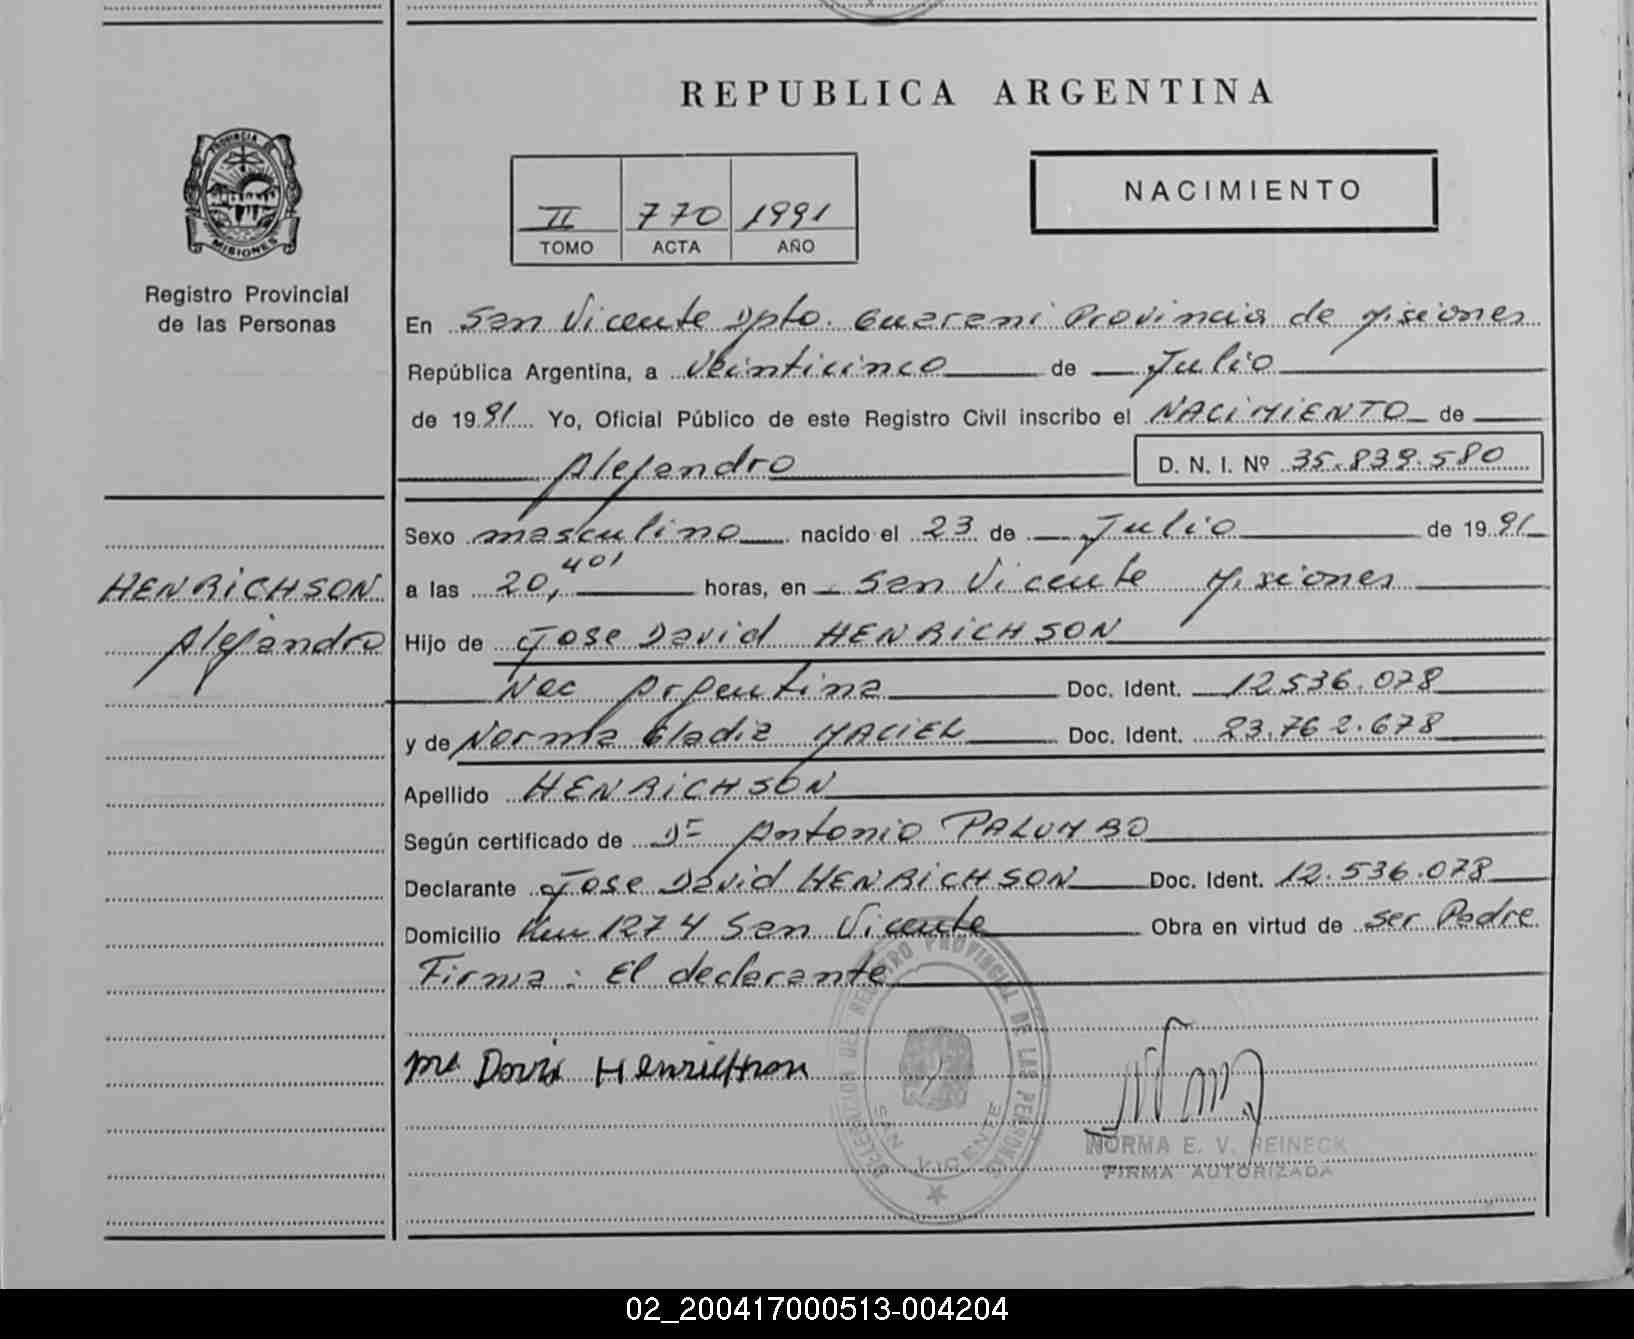 REPUBLICA ARGENTINA
PROVINCIA DE
MISIONES
Registro Provincial
de las Personas
II 770 1991
TOMO ACTA AÑO
NACIMIENTO
En San Vicente Dpto. Guarani Provincia de Misiones
República Argentina, a Veinticinco de Julio
de 1991 Yo, Oficial Público de este Registro Civil inscribo el NACIMIENTO de
Alejandro D. N. I. Nº 35.839.580
Sexo masculino nacido el 23 de Julio de 1991
HENRICHSON
Alejandro
a las 20,40' horas, en San Vicente Misiones
Hijo de Jose David HENRICHSON
Nac Argentina Doc. Ident. 12.536.078
y de Norma Gladiz MACIEL Doc. Ident. 23.762.678
Apellido HENRICHSON
Según certificado de Dr Antonio PALUMBO
Declarante Jose David HENRICHSON Doc. Ident. 12.536.078
Domicilio Km 1274 San Vicente Obra en virtud de ser Padre
Firma: El declarante
DELEGACION DEL REGISTRO PROVINCIAL DE LAS PERSONAS
SAN VICENTE
David Henrichson
NORMA E. V. REINECK
FIRMA AUTORIZADA
02_200417000513-004204